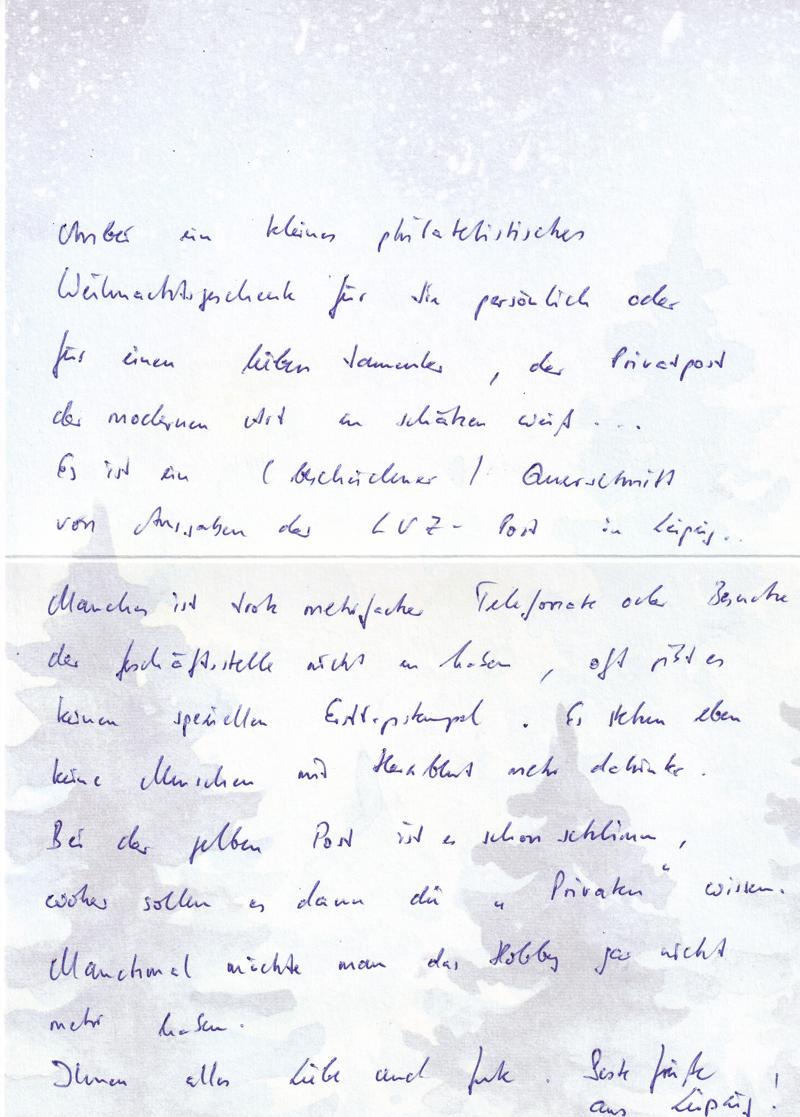 Anbei ein kleines philatelistisches
Weihnachtsgeschenk für Sie persönlich oder
für einen lieben Sammler, der Privatpost
der modernen Art zu schätzen weiß...
Es ist ein (bescheidener) Querschnitt
von Ausgaben der LVZ-Post in Leipzig..
Manches ist trotz mehrfacher Telefonate oder Besuche
der Geschäftsstelle nicht zu haben, oft gibt es
keinen speziellen Ersttagsstempel. Es stehen eben
keine Menschen mit Herzblut mehr dahinter.
Bei der gelben Post ist es schon schlimm,
woher sollen es dann die „Privaten" wissen.
Manchmal möchte man das Hobby gar nicht
mehr haben.
Ihnen alles Liebe und Gute. Beste Grüße
aus Leipzig!